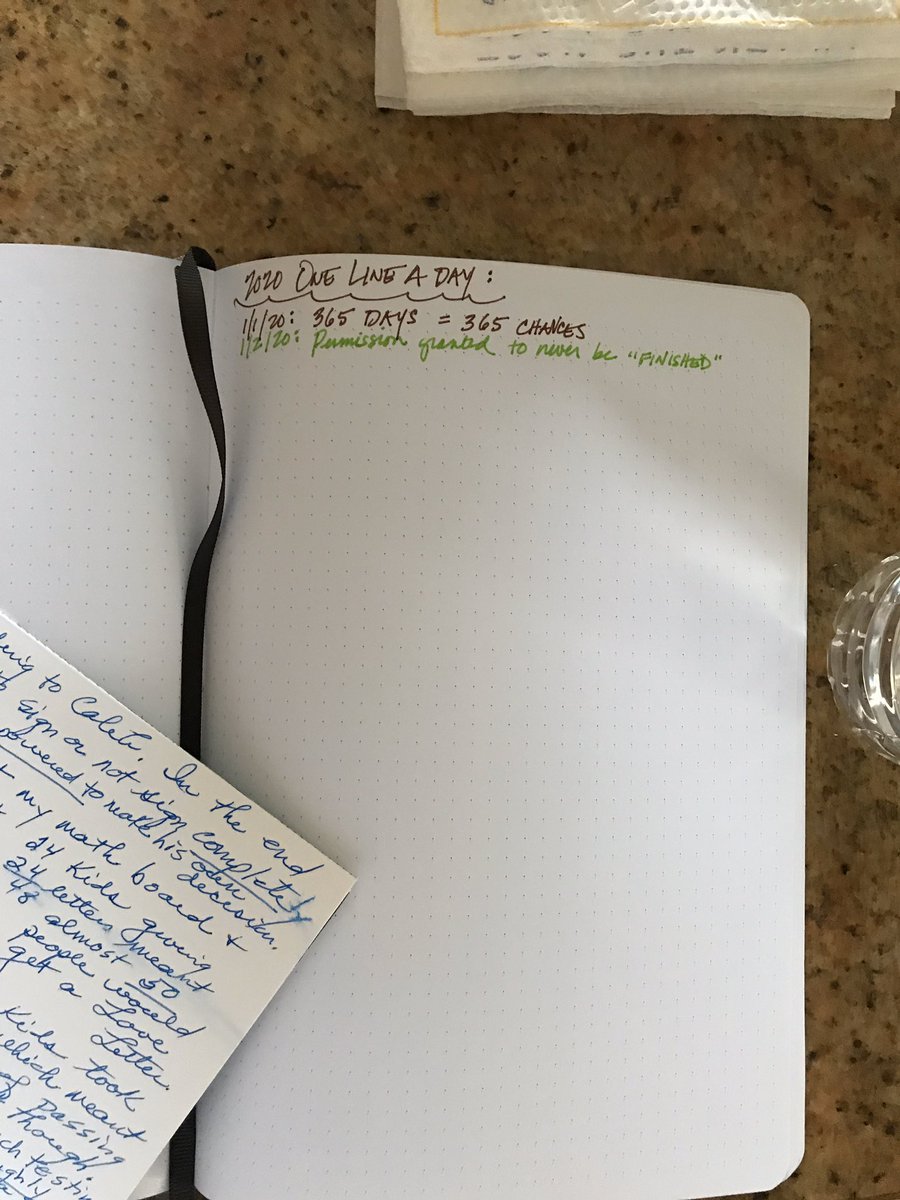 2020 ONE LINE A DAY:
1/1/20: 365 DAYS = 365 CHANCES
1/2/20: Permission granted to never be "FINISHED"
to Caleb. In the end
sign or not sign completely
powered to make his own decision.
my math board +
24 kids giving
24 letters meant
48 almost 50
people would
get a Love
Letter.
Kids took
which meant
passing
though